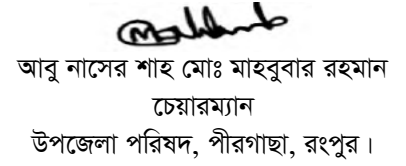 আবু নাসের শাহ মোঃ মাহবুবার রহমান
চেয়ারম্যান
উপজেলা পরিষদ, পীরগাছা, রংপুর।